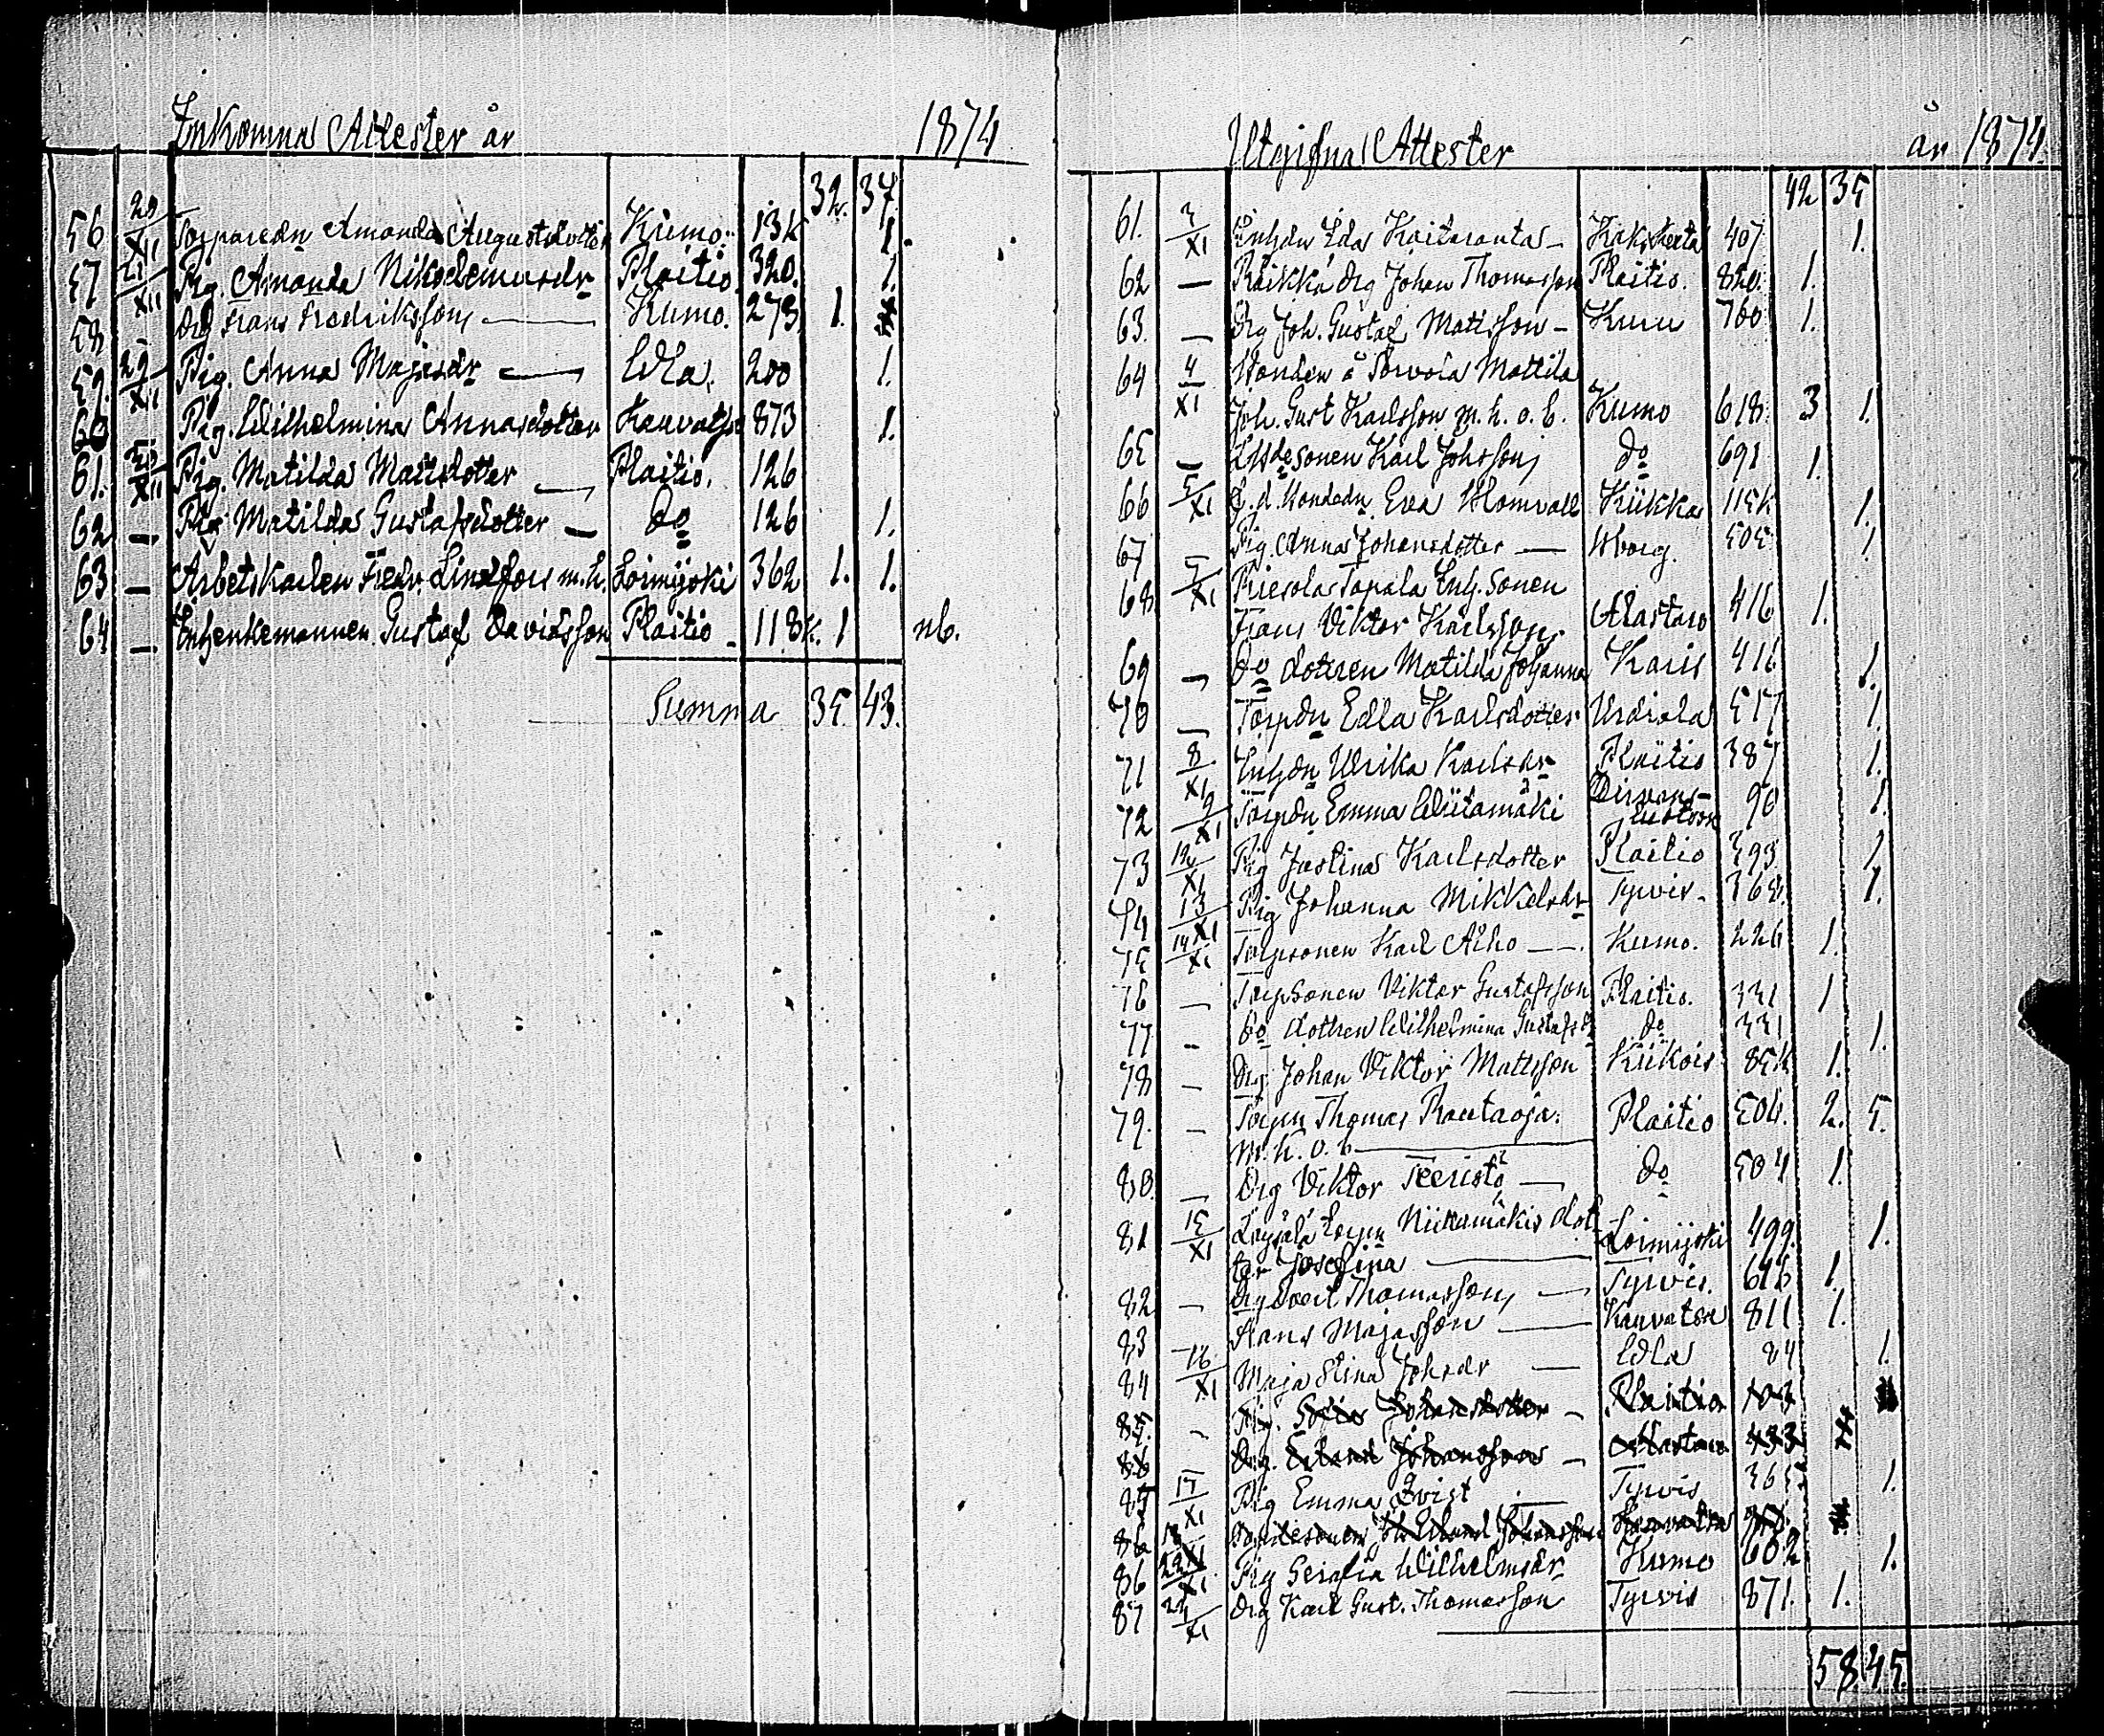 Inkomna Attester år 1874
32. 37.
56 20/XII Torparedn Amanda Augustsdotter Kumo. 134 1.
57 21/XII Pig. Amanda Nikodemusdr Plaitio. 320. 1.
58 - Drg Frans Fredriksson — Kumo. 278 1.
59. 22/XII Pig. Anna Majasdr — Ulla. 200 1.
60 Pig. Wilhelmina Annasdotter Kauvatsa 873 1.
61. XII Pig. Matilda Mattsdotter — Plaitio. 126
62 — Pig Matilda Gustafsdotter — do 126 1.
63 — Arbetskarlen Fredr. Lindfors m.h. Loimijoki 362 1. 1.
64 — Enkenkemannen Gustaf Davidsson Plaitio - 118 1 nb.
Summa 35. 43.
Utgifna Attester år 1874.
42 35
61. 3/XI Inhdn Ida Kaitaranta — Kakskerta 407 1.
62 — Räikkä drg Johan Thomasson Plaitio. 820. 1.
63. — Drg Joh. Gustaf Matisson — Kumo 760 1.
64 4/XI Bonden å Torvola Mattila
Joh. Gust Karlsson m. h. o. b. Kumo 618. 3 1.
65 — sonen Karl Johsson do 691 1.
66 5/XI F. d. bondedn Eva Blomvall Kiikka 1154 1.
67 — Pig. Anna Johansdotter — Wborg. 505 1.
68 5/XI Piesola Tapala Inh. sonen
Frans Viktor Karlsson. Alastaro 416 1.
69 — do dottren Matilda Johanna Karis 416 1.
70 — Torpdn Edla Karlsdotter Urdiala 517 1.
71 8/XI Inhdn Ulrika Karlsdr Plaitio 387 1.
72 9/XI Torpdn Emma Wiitamäki 90 1.
73 12/XI Pig Justina Karlsdotter Plaitio 393 1.
74 13/XI Pig Johanna Mikkelsdr Tyrvis - 368. 1.
75 14/XI Torpsonen Karl Alho — Kumo. 226 1.
76 — Torpsonen Viktor Gustafsson Plaitio. 331 1
77 - do dottren Wilhelmina Gustafsd do 331 1.
78 — Drg Johan Viktor Mattsson Kiikois 854 1.
79. — Torpn Thomas Rautaoja. Plaitio 504. 2. 5.
m. h. o. b —
80. — Drg Viktor Teeristö — do 504 1.
81 15/XI torpn Niikamäkis dot-
ter Josefina — Loimijoki 499. 1.
82 — Drg Evert Thomasson, — Tyrvis. 1.
83 Frans Majasson — Kauvatsa 811 1.
84 16/XI Maja Stina Johsdr — Ulla 84 1.
85. - Pig. Sofia Johansdotter — Plaitio
86 Drg. Erland Johansson — Alastaro 433
85 17/XI Pig Emma Qvist — Tyrvis 365. 1.
86 18/XI Erland Johansson Kauvatsa
86 22/XI Pig Serafia Wilhelmsdr Kumo 602 1.
87 24/XI Drg Karl Gust. Thomasson Tyrvis 871. 1.
58. 45.